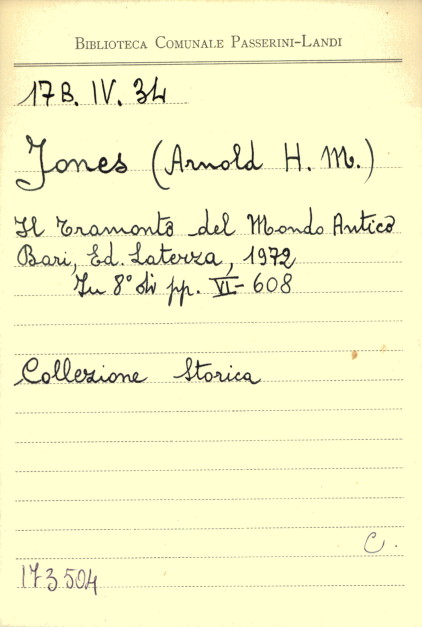 BIBLIOTECA COMUNALE PASSERINI-LANDI
17B. IV. 34
Jones (Arnold H. M.)
Il tramonto del Mondo Antico
Bari, Ed. Laterza, 1972
In 8° di pp. VI-608
Collezione Storica
C.
173504